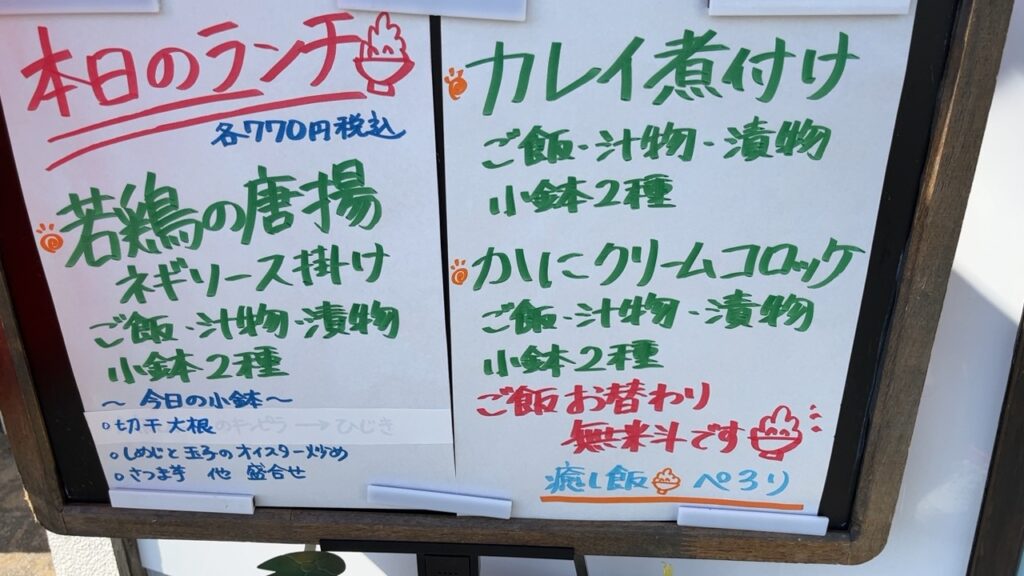 本日のランチ
各770円税込
若鶏の唐揚
ネギソース掛け
ご飯・汁物・漬物
小鉢2種
～今日の小鉢～
○切干大根のキンピラ→ひじき
○しめじと玉子のオイスター炒め
○さつま芋 他 盛合せ
カレイ煮付け
ご飯・汁物・漬物
小鉢2種
かにクリームコロッケ
ご飯・汁物・漬物
小鉢2種
ご飯お替わり
無料です
癒し飯 ぺろり